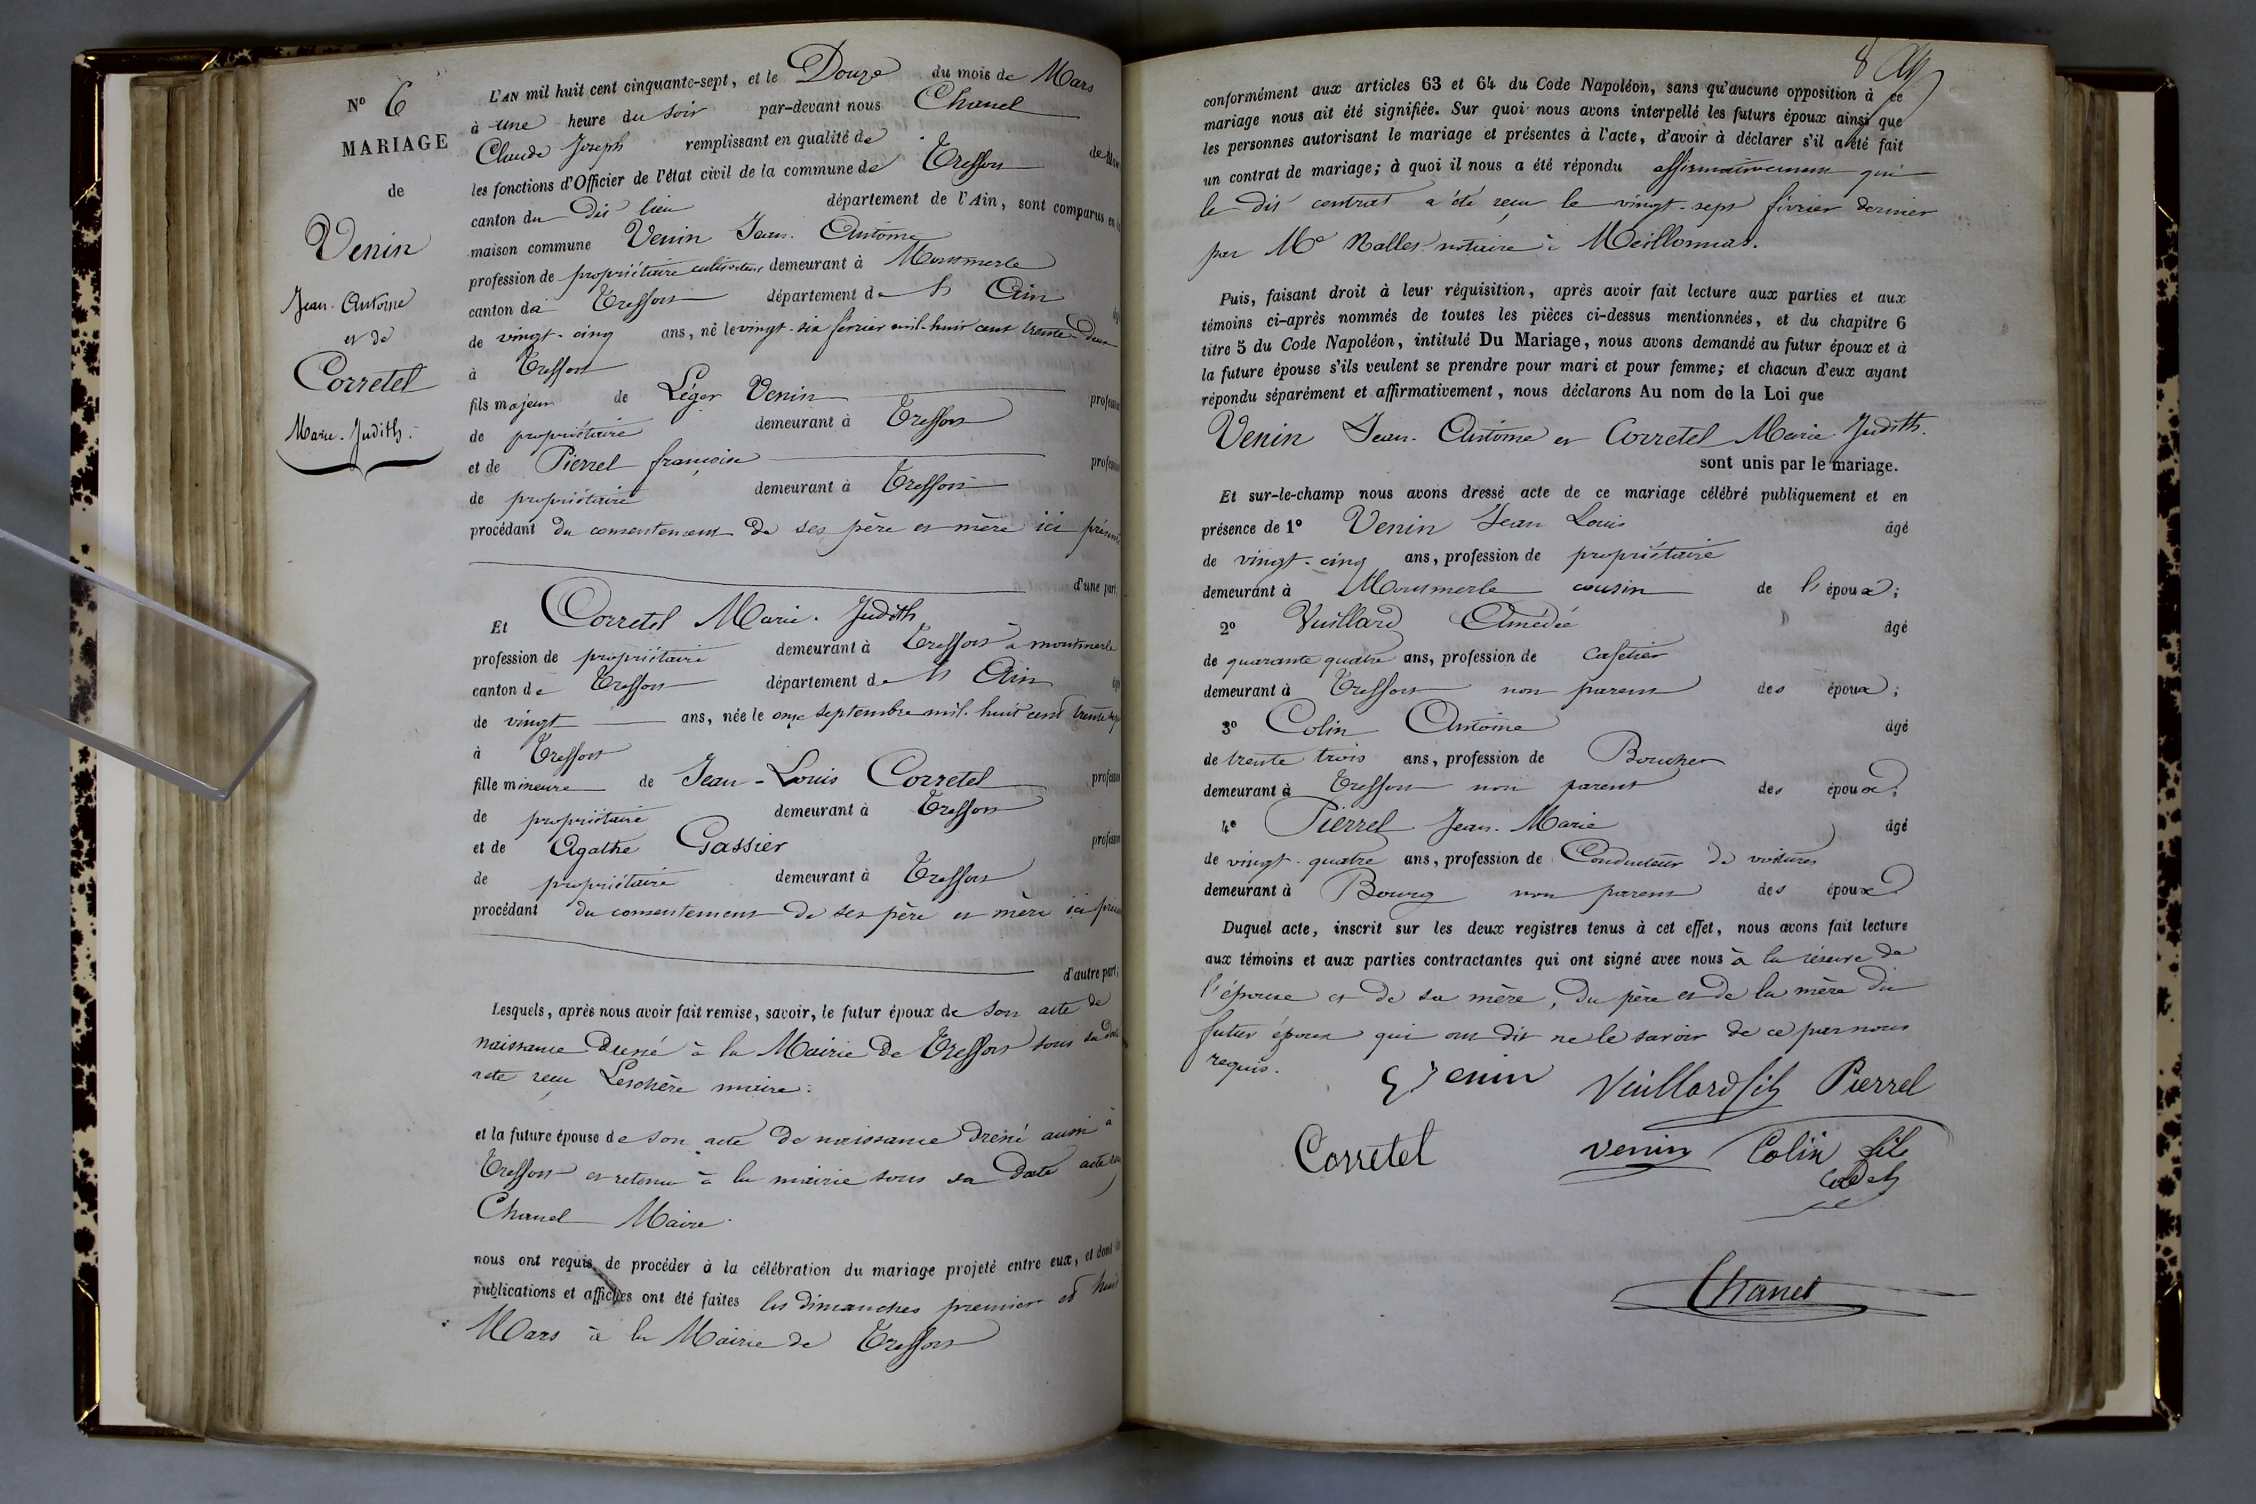 Nº 6
MARIAGE
de
Venin
Jean-Antoine
et de
Corretel
Marie-Judith.
L'AN mil huit cent cinquante-sept, et le Douze du mois de Mars
à une heure du soir par-devant nous Chanel
Claude Joseph remplissant en qualité de de Maire
les fonctions d'Officier de l'état civil de la commune de Treffort
canton du Dit lieu département de l'Ain, sont comparus en la
maison commune Venin Jean-Antoine
profession de propriétaire cultivateur demeurant à Montmerle
canton de Treffort département de l'Ain
de vingt-cinq ans, né le vingt-six février mil-huit cent trente-deux
à Treffort
fils majeur de Léger Venin profession
de propriétaire demeurant à Treffort
et de Pierrel françoise profession
de propriétaire demeurant à Treffort
procédant du consentement de ses père et mère ici présents
d'une part,
Et Corretel Marie-Judith
profession de propriétaire demeurant à Treffort à montmerle
canton de Treffort département de l'Ain
de vingt ans, née le onze septembre mil-huit cent trente
à Treffort
fille mineure de Jean-Louis Corretel profession
de propriétaire demeurant à Treffort
et de Agathe Gassier profession
de propriétaire demeurant à Treffort
procédant du consentement de ses père et mère ici
d'autre part;
Lesquels, après nous avoir fait remise, savoir, le futur époux de son acte de
naissance dressé à la Mairie de Treffort sous sa date
acte reçu maire.
et la future épouse de son acte de naissance dressé aussi à
Treffort et retenu à la mairie sous sa date acte reçu
Chanel Maire.
nous ont requis de procéder à la célébration du mariage projeté entre eux, et dont les
publications et affiches ont été faites les dimanches premier et huit
Mars à la Mairie de Treffort
8
conformément aux articles 63 et 64 du Code Napoléon, sans qu'aucune opposition à ce
mariage nous ait été signifiée. Sur quoi nous avons interpellé les futurs époux ainsi que
les personnes autorisant le mariage et présentes à l'acte, d'avoir à déclarer s'il a été fait
un contrat de mariage; à quoi il nous a été répondu affirmativement que
le dit contrat a été reçu le vingt-sept février dernier
par Me notaire à Meillonnas.
Puis, faisant droit à leur réquisition, après avoir fait lecture aux parties et aux
témoins ci-après nommés de toutes les pièces ci-dessus mentionnées, et du chapitre 6
titre 5 du Code Napoléon, intitulé Du Mariage, nous avons demandé au futur époux et à
la future épouse s'ils veulent se prendre pour mari et pour femme; et chacun d'eux ayant
répondu séparément et affirmativement, nous déclarons Au nom de la Loi que
Venin Jean-Antoine et Corretel Marie Judith.
sont unis par le mariage.
Et sur-le-champ nous avons dressé acte de ce mariage célébré publiquement et en
présence de 1º Venin Jean Louis âgé
de vingt-cinq ans, profession de propriétaire
demeurant à Montmerle cousin de l'époux;
2º Vuillard Amédée âgé
de quarante quatre ans, profession de cafetier
demeurant à Treffort non parent des époux;
3º Colin Antoine âgé
de trente trois ans, profession de Boucher
demeurant à Treffort non parent des époux;
4º Pierrel Jean-Marie âgé
de vingt-quatre ans, profession de Conducteur de voitures
demeurant à Bourg non parent des époux
Duquel acte, inscrit sur les deux registres tenus à cet effet, nous avons fait lecture
aux témoins et aux parties contractantes qui ont signé avec nous à la réserve de
l'épouse et de sa mère, du père et de la mère du
futur époux qui ont dit ne le savoir de ce par nous
requis.
Venin Vuillard fils Pierrel
Corretel venin Colin fils
cadet
Chanel